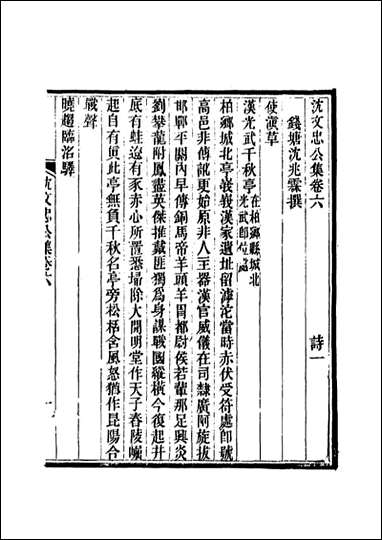 沈文忠公集卷六
詩一
錢塘沈兆霖撰
使滇草
漢光武千秋亭在柏鄉縣城北光武卽位處
柏鄉城北亭峩峩漢家遺址留滹沱當時赤伏受符處卽號
高邑非傳訛更始原非人主器漢官威儀在司隸廣阿旋拔
邯鄲平關內早傳銅馬帝羊頭羊胃都尉侯若輩那足興炎
劉攀龍附鳳盡英傑推戴匪獨為身謀戰國縱橫今復起井
底有蛙遼有豕赤心所置悉掃除大開明堂作天子舂陵崛
起自有眞此亭無負千秋名亭旁松栝含風怒猶作昆陽合
戰聲
曉趨臨洺驛
沈文忠公集卷六
一